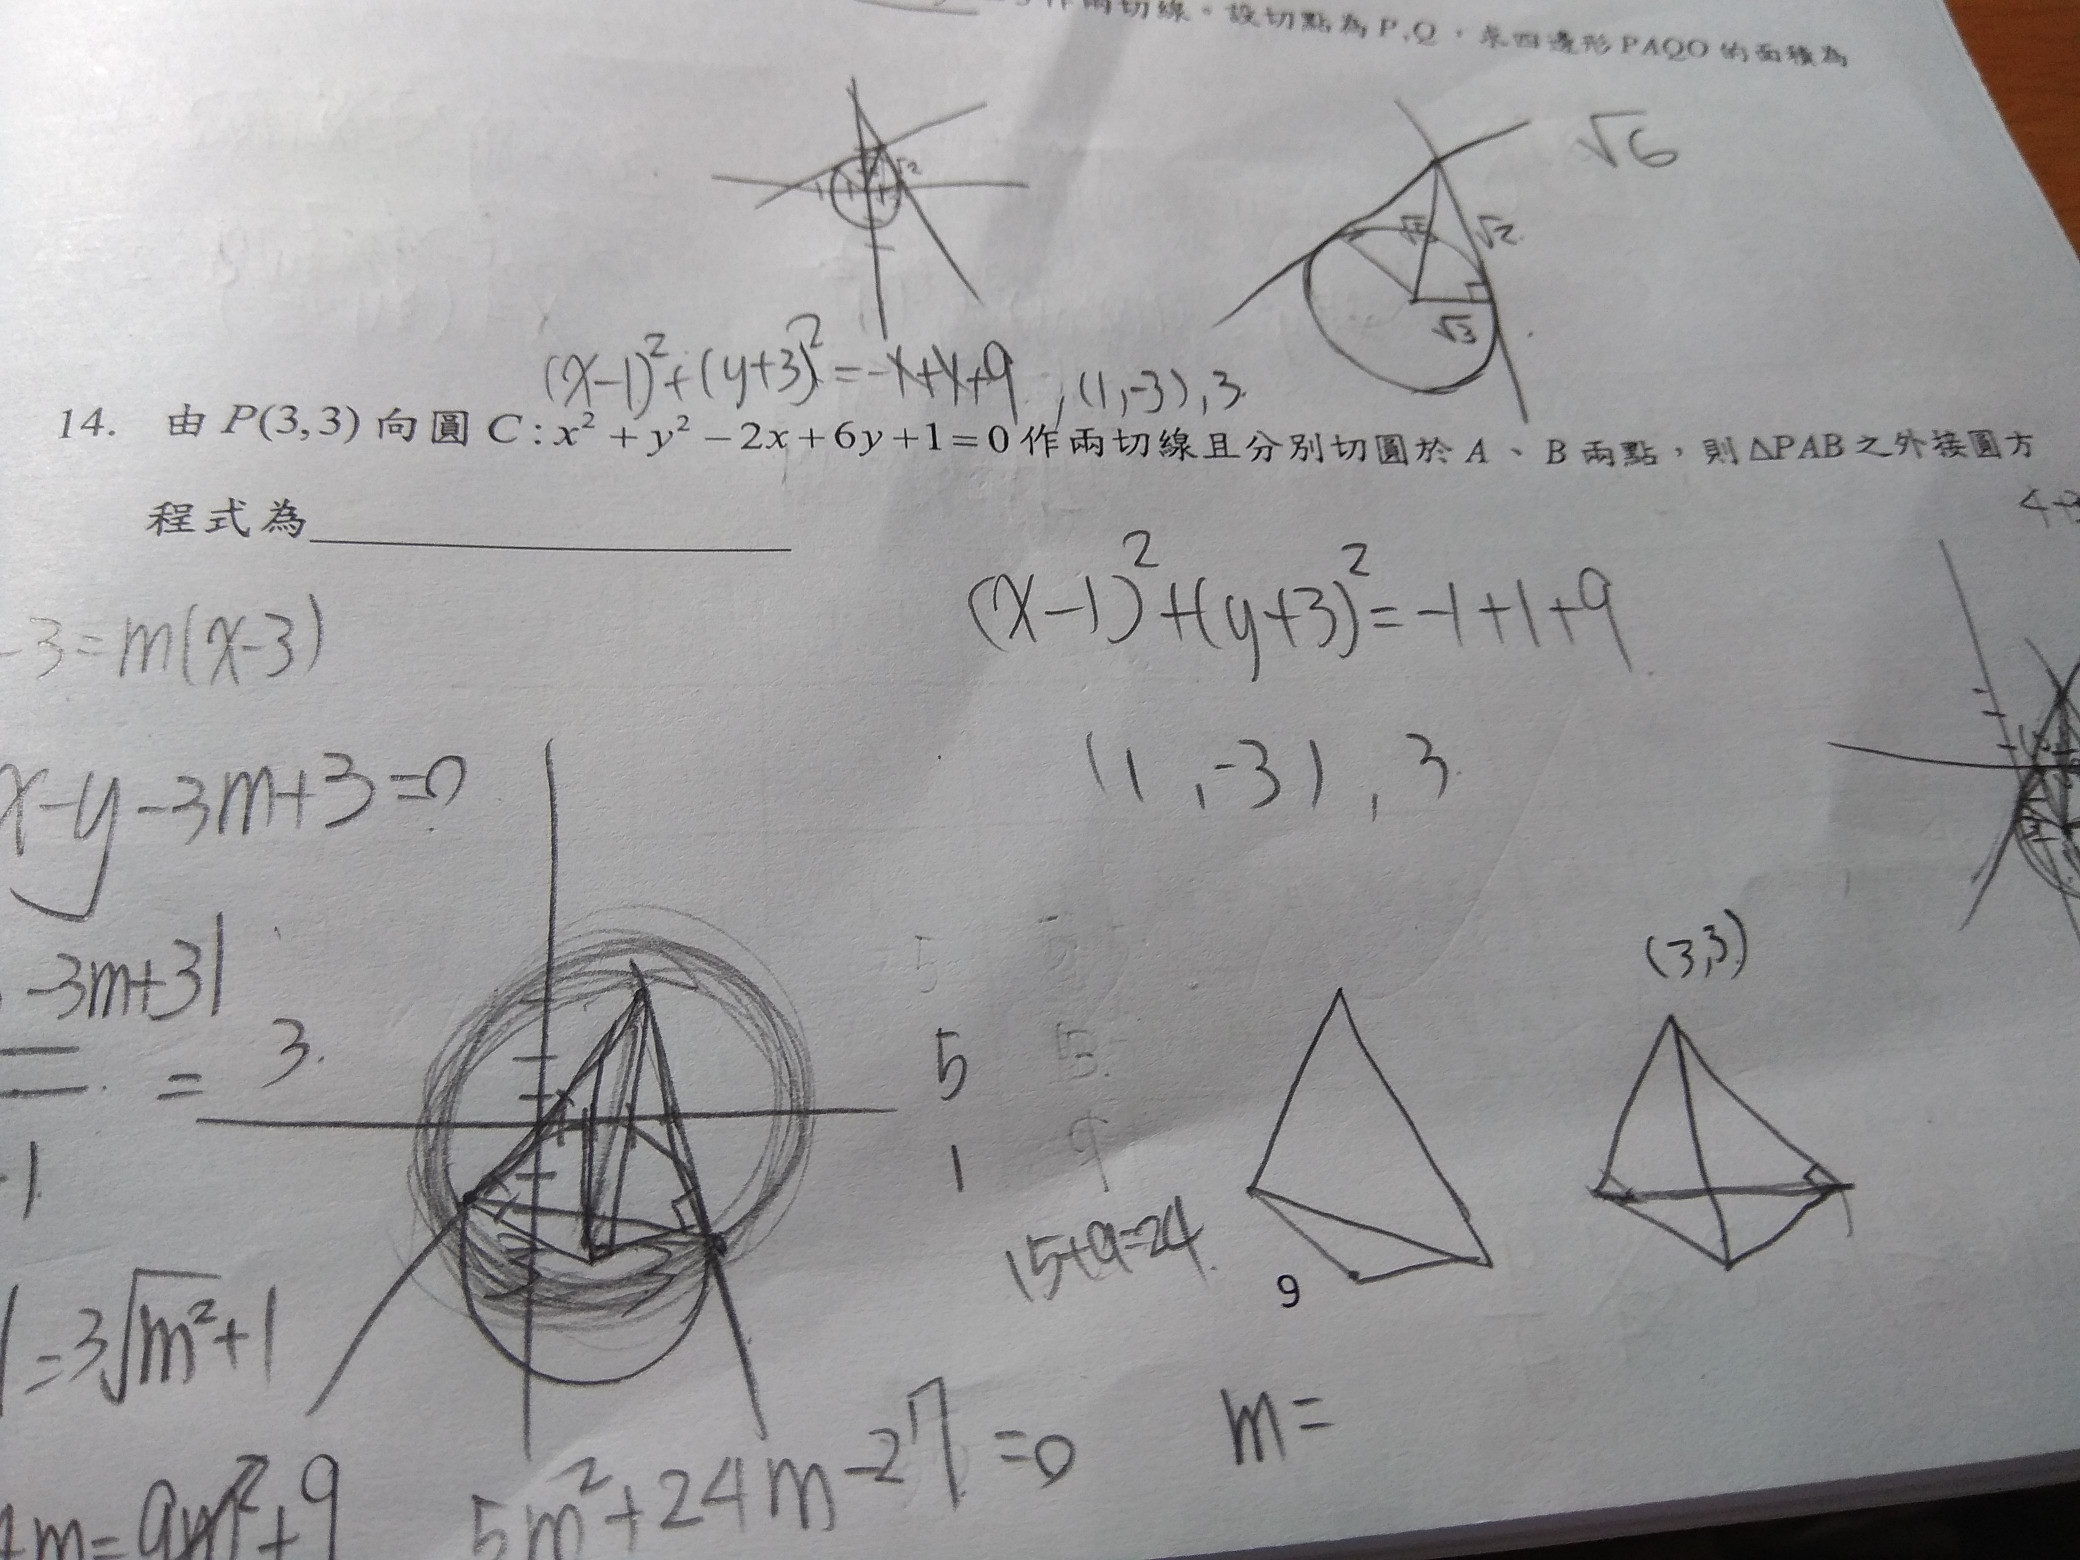 作兩切線。設切點為P,Q,求四邊形PAQO的面積為
√6
√2
√2
√3
(x-1)²+(y+3)²=-1+1+9, (1,-3), 3
14. 由P(3,3)向圓C:x²+y²-2x+6y+1=0作兩切線且分別切圓於A、B兩點,則ΔPAB之外接圓方
程式為
-3=m(x-3)
(x-1)²+(y+3)²=-1+1+9
x-y-3m+3=0
(1,-3), 3
-3m+3|
= 3.
(3,3)
5
1
15+9=24
9
=3√m²+1
m=
m=9m²+9
5m²+24m-27=0